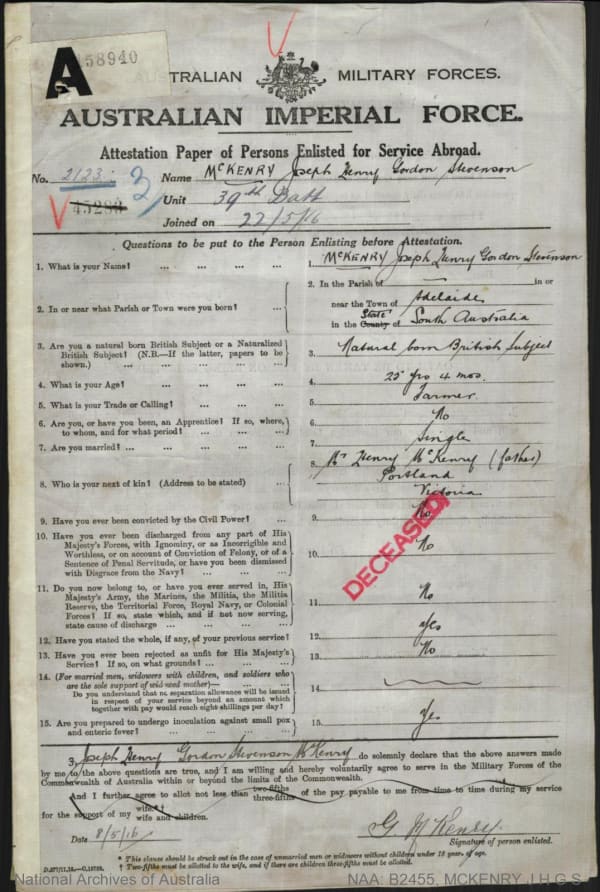 A
58940
AUSTRALIAN MILITARY FORCES.
AUSTRALIAN IMPERIAL FORCE.
Attestation Paper of Persons Enlisted for Service Abroad.
No. 2123 3 Name McKENRY Joseph Henry Gordon Stevenson
45283 Unit 39th Batt
Joined on 22/5/16
Questions to be put to the Person Enlisting before Attestation.
1. What is your Name? ... ... ... ... 1. McKENRY Joseph Henry Gordon Stevenson
2. In or near what Parish or Town were you born? ... 2. In the Parish of — in or
near the Town of Adelaide
State
in the County of South Australia
3. Are you a natural born British Subject or a Naturalized
British Subject? (N.B.—If the latter, papers to be
shown.) ... ... ... ... 3. Natural born British Subject
4. What is your Age? ... ... ... ... 4. 25 yrs 4 mos.
5. What is your Trade or Calling? ... ... ... 5. Farmer.
6. Are you, or have you been, an Apprentice? If so, where,
to whom, and for what period? ... ... ... 6. No
7. Are you married? ... ... ... ... 7. Single
8. Who is your next of kin? (Address to be stated) ... 8. Mr Henry McKenry (father)
Portland
Victoria
9. Have you ever been convicted by the Civil Power? ... 9. No
10. Have you ever been discharged from any part of His
Majesty's Forces, with Ignominy, or as Incorrigible and
Worthless, or on account of Conviction of Felony, or of a
Sentence of Penal Servitude, or have you been dismissed
with Disgrace from the Navy? ... ... ... 10. No
DECEASED
11. Do you now belong to, or have you ever served in, His
Majesty's Army, the Marines, the Militia, the Militia
Reserve, the Territorial Force, Royal Navy, or Colonial
Forces? If so, state which, and if not now serving,
state cause of discharge ... ... ... 11. No
12. Have you stated the whole, if any, of your previous service? 12. Yes
13. Have you ever been rejected as unfit for His Majesty's
Service? If so, on what grounds? ... ... ... 13. No
14. (For married men, widowers with children, and soldiers who
are the sole support of widowed mother)—
Do you understand that no separation allowance will be issued
in respect of your service beyond an amount which
together with pay would reach eight shillings per day? 14.
15. Are you prepared to undergo inoculation against small pox
and enteric fever? ... ... ... ... 15. Yes
I, Joseph Henry Gordon Stevenson McKenry do solemnly declare that the above answers made
by me to the above questions are true, and I am willing and hereby voluntarily agree to serve in the Military Forces of the
Commonwealth of Australia within or beyond the limits of the Commonwealth.
And I further agree to allot not less than two-fifths
three-fifths of the pay payable to me from time to time during my service
for the support of my wife
wife and children.
Date 8/5/16 G. McKenry.
Signature of person enlisted.
* This clause should be struck out in the case of unmarried men or widowers without children under 18 years of age.
† Two-fifths must be allotted to the wife, and if there are children three-fifths must be allotted.
National Archives of Australia NAA: B2455, MCKENRY J H G S